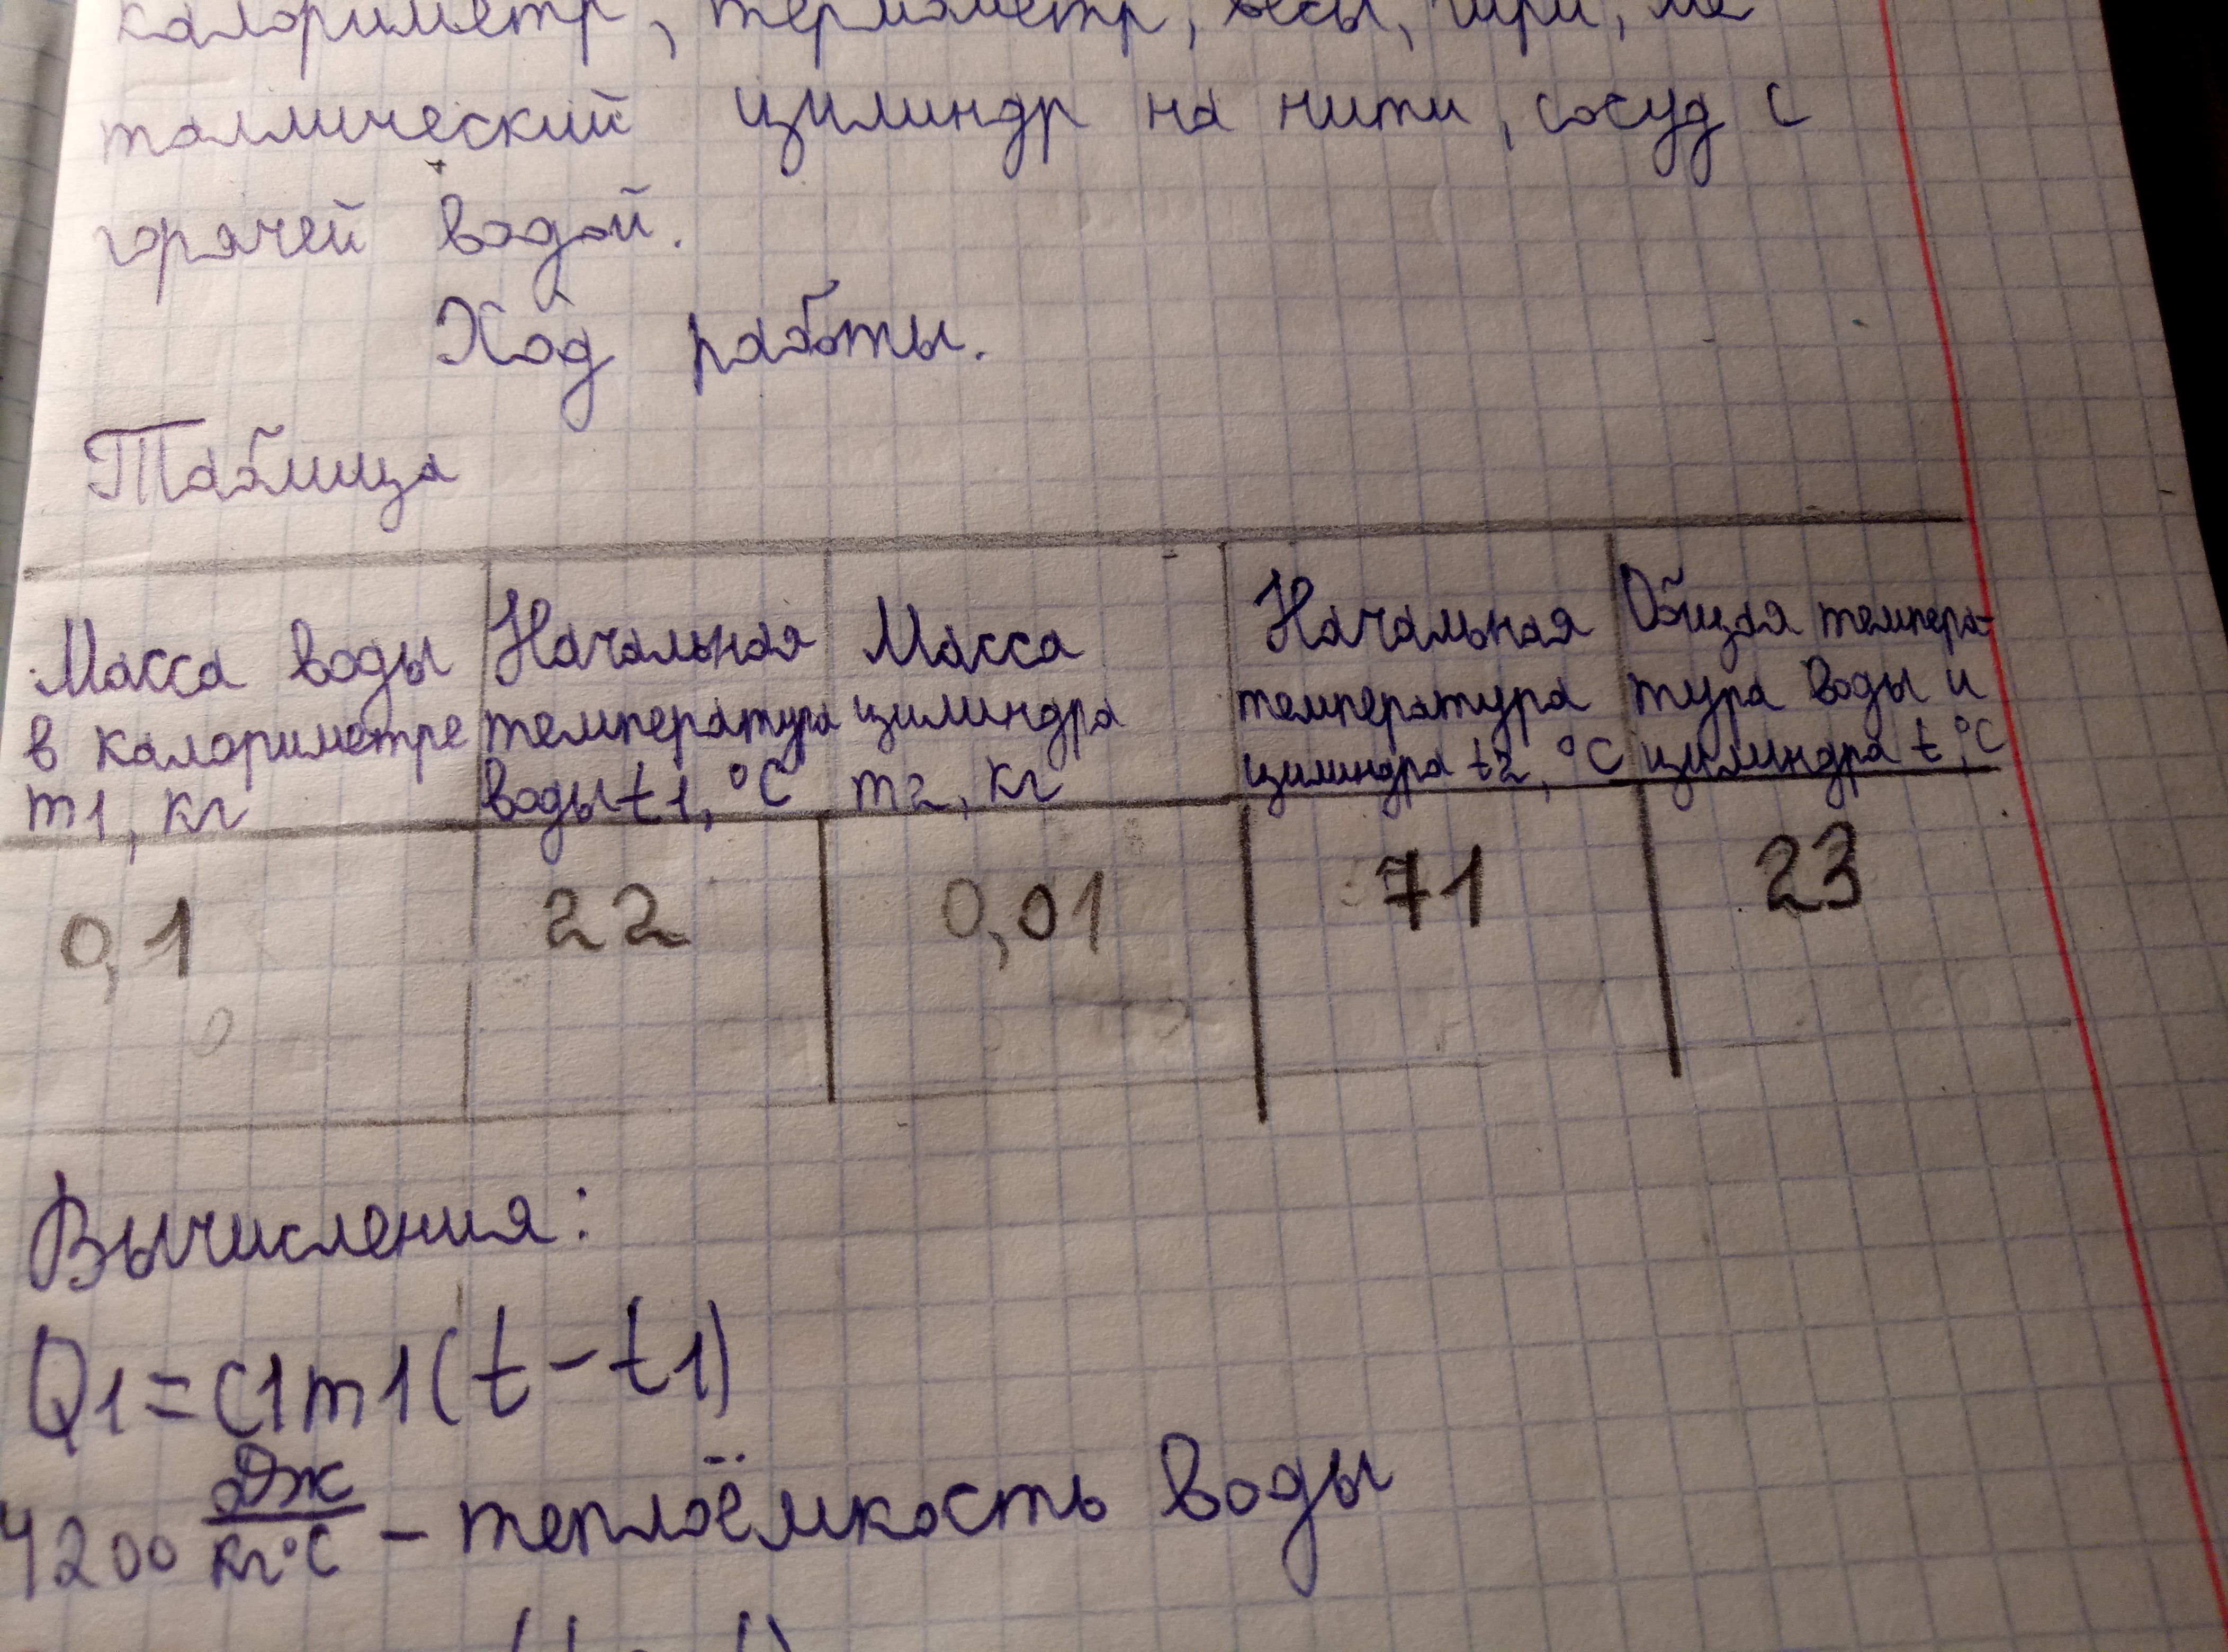 калориметр, термометр, весы, гири, ме
таллический цилиндр на нити, сосуд с
горячей водой.
Ход работы.
Таблица
Масса воды в калориметре m1, кг
Начальная температура воды t1, °C
Масса цилиндра m2, кг
Начальная температура цилиндра t2, °C
Общая темпера-
тура воды и цилиндра t, °C
0,1 22 0,01 71 23
Вычисления:
Q1=c1m1(t-t1)
4200 Дж/кг°C - теплоёмкость воды